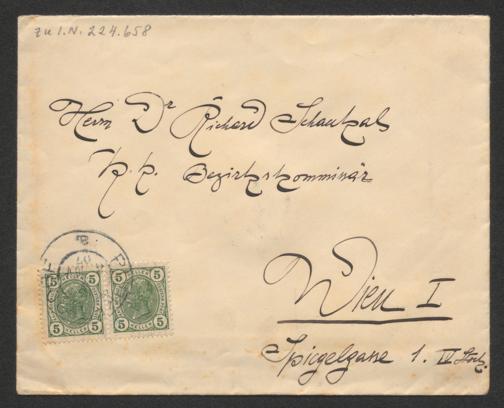 zu I.N. 224.658
Herrn Dr Richard Schaukal
k.k. Bezirkskommissär
Wien I
Spiegelgasse 1. IV Stock.
5 5 5 5
5 HELLER 5 5 HELLER 5